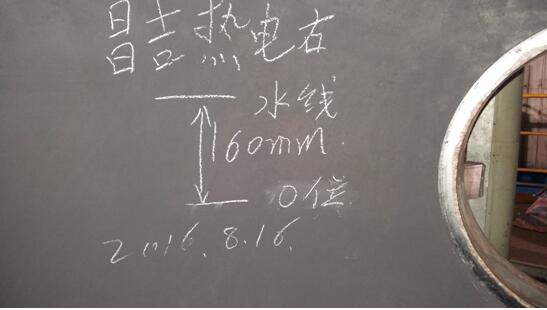 昌吉热电右
水线
160mm
0位
2016.8.16.